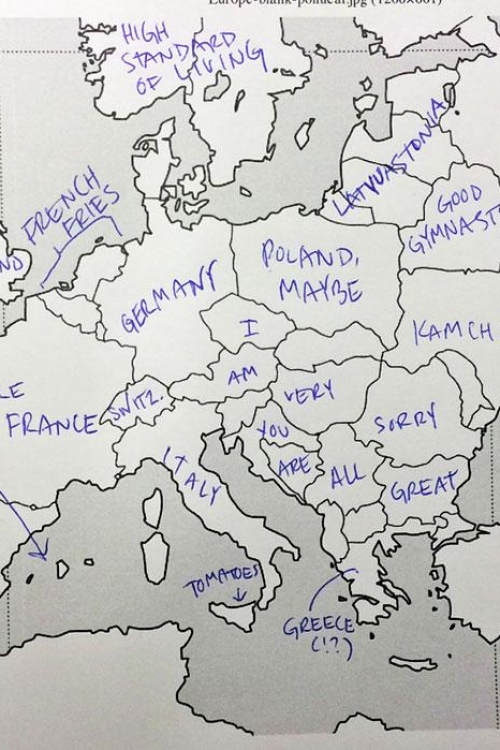 Europe-blank-political.jpg (1200×801)
HIGH
STANDARD
OF LIVING
LATVUASTONIA
FRENCH
FRIES
GOOD
GYMNAST
ND
POLAND,
MAYBE
GERMANY
I
KAMCH
AM
LE
FRANCE
SWITZ.
VERY
SORRY
YOU
ITALY
ARE
ALL
GREAT
TOMATOES
GREECE
(!?)